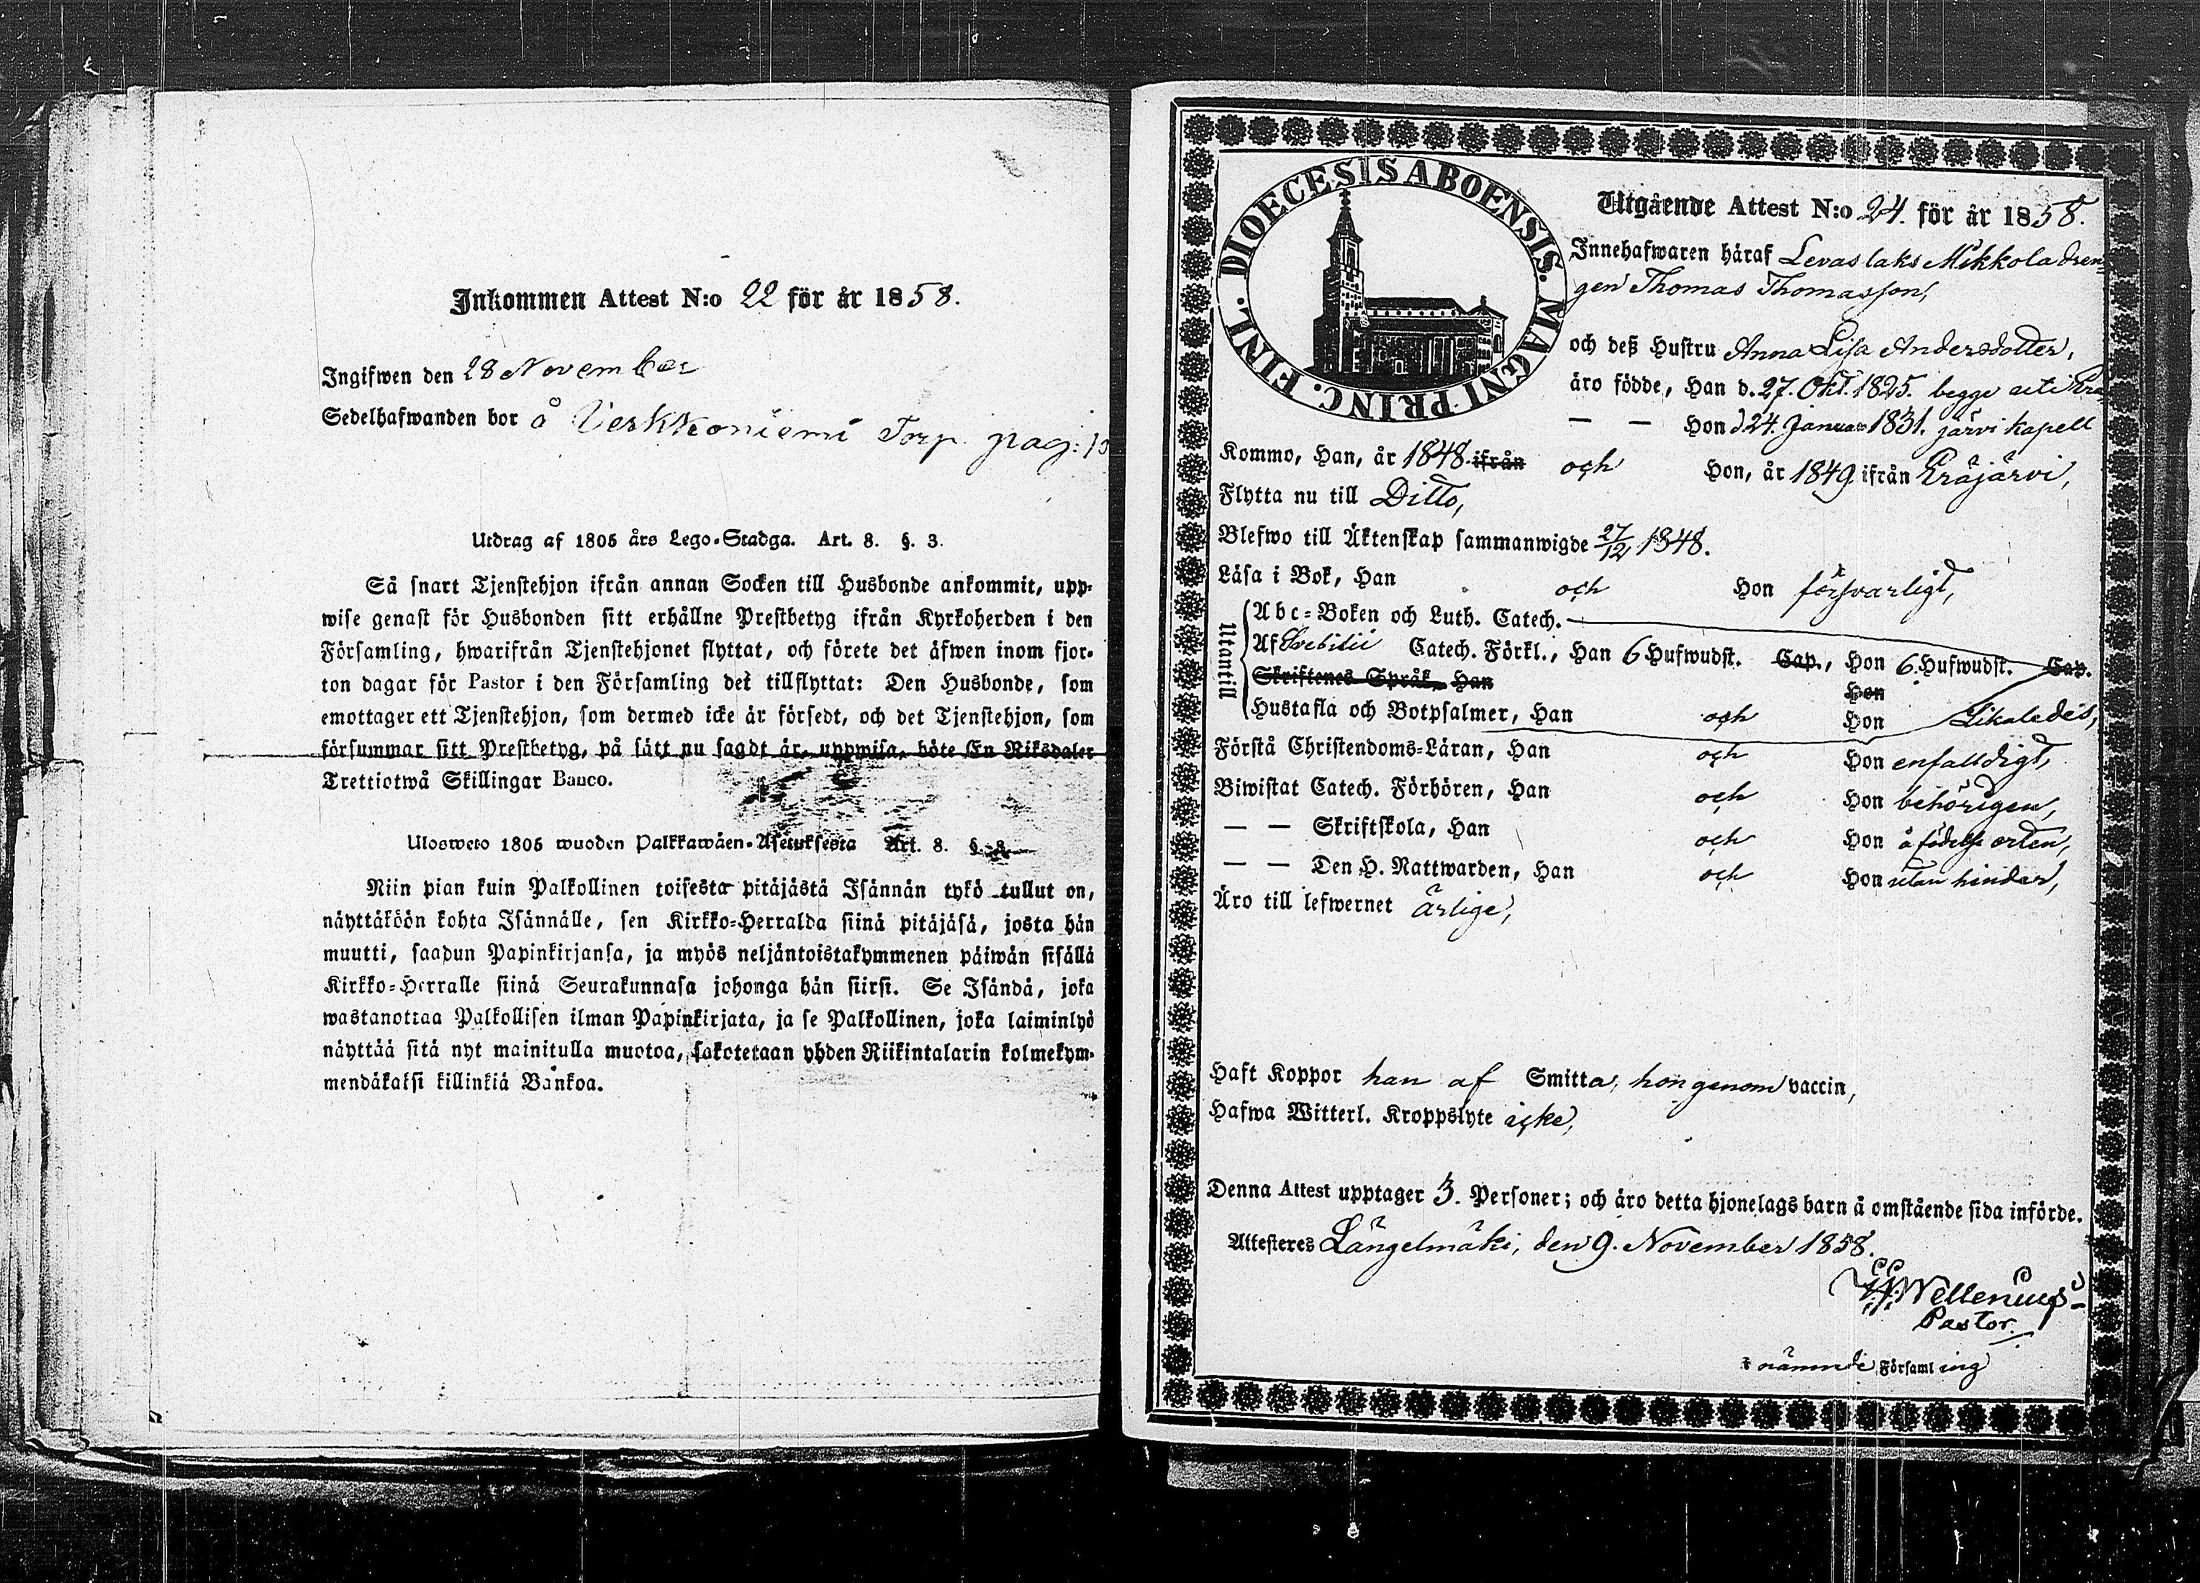 Inkommen Attest N:o 22 för år 1858.
Ingifwen den 28 November
Sedelhafwanden bor å Verkkoniemi Torp pag: 13
Utdrag af 1805 års Lego-Stadga. Art. 8. §. 3.
Så snart Tjenstehjon ifrån annan Socken till Husbonde ankommit, upp-
wise genast för Husbonden sitt erhållne Prestbetyg ifrån Kyrkoherden i den
Församling, hwarifrån Tjenstehjonet flyttat, och förete det äfwen inom fjor-
ton dagar för Pastor i den Församling det tillflyttat: Den Husbonde, som
emottager ett Tjenstehjon, som dermed icke är försedt, och det Tjenstehjon, som
försummar sitt Prestbetyg, på sätt nu sagdt är, uppwisa, böte En Riksdaler
Trettiotwå Skillingar Banco.
Ulosweto 1805 wuoden Palkkawäen-Asetuksesta Art. 8. §. 3.
Niin pian kuin Palkollinen toisesta pitäjästä Isännän tykö tullut on,
näyttäköön kohta Isännälle, sen Kirkko-Herralda siinä pitäjäsä, josta hän
muutti, saadun Papinkirjansa, ja myös neljäntoistakymmenen päiwän sisällä
Kirkko-Herralle siinä Seurakunnasa johonga hän siirsi. Se Isändä, joka
wastanottaa Palkollisen ilman Papinkirjata, ja se Palkollinen, joka laiminlyö
näyttää sitä nyt mainitulla muotoa, sakotetaan yhden Riikintalarin kolmekym-
mendäkaksi killinkiä Bankoa.
DIOECESIS ABOENSIS. MAGNI PRINC. FINL.
Utgående Attest N:o 24. för år 1858.
Innehafwaren häraf Levaslaks Mikkola dren-
gen Thomas Thomasson,
och deß Hustru Anna Lisa Andersdotter,
äro födde, Han d. 27. Okt. 1825. begge uti Erä-
— — Hon d 24. Januar 1831. järvi kapell
Kommo, Han, år 1848 ifrån och Hon, år 1849 ifrån Eräjärvi,
Flytta nu till Ditto,
Blefwo till Äktenskap sammanwigde 27/12 1848.
Läsa i Bok, Han och Hon försvarligt,
Utantill
Abc-Boken och Luth. Catech.
Af Svebilii Catech. Förkl., Han 6 Hufwudst. Cap., Hon 6. Hufwudst. Cap.
Skriftenes Språk, Han Hon
Hustafla och Botpsalmer, Han och Hon Likaledes,
Förstå Christendoms-Läran, Han och Hon enfalldigt,
Biwistat Catech. Förhören, Han och Hon behörigen,
— — Skriftskola, Han och Hon å födelse orten,
— — Den H. Nattwarden, Han och Hon utan hinder,
Äro till lefwernet ärlige,
Haft Koppor han af Smitta, hon genom vaccin,
Hafwa Witterl. Kroppslyte icke,
Denna Attest upptager 3. Personer; och äro detta hjonelags barn å omstående sida införde.
Attesteres Längelmäki, den 9. November 1858.
Wellenius
Pastor.
i nämnde Församling